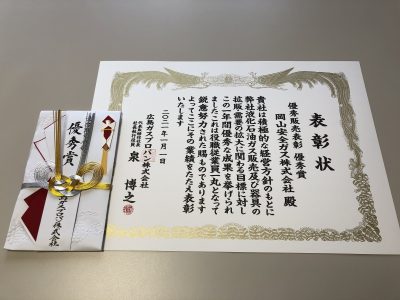 表彰状
優秀販売表彰 優秀賞
岡山安全ガス株式会社 殿
貴社は積極的な経営方針のもとに
弊社液化石油ガス販売及び器具の
拡販営業の拡大に関わる目標に対し
この一年間優秀な成果を挙げられ
ましたこれは役職従業員一丸となって
鋭意努力された賜ものであります
よってここにその業績をたたえ表彰
いたします
二〇二一年一月一日
広島ガスプロパン株式会社
泉 博之
優秀賞
ガスプロパン株式会社